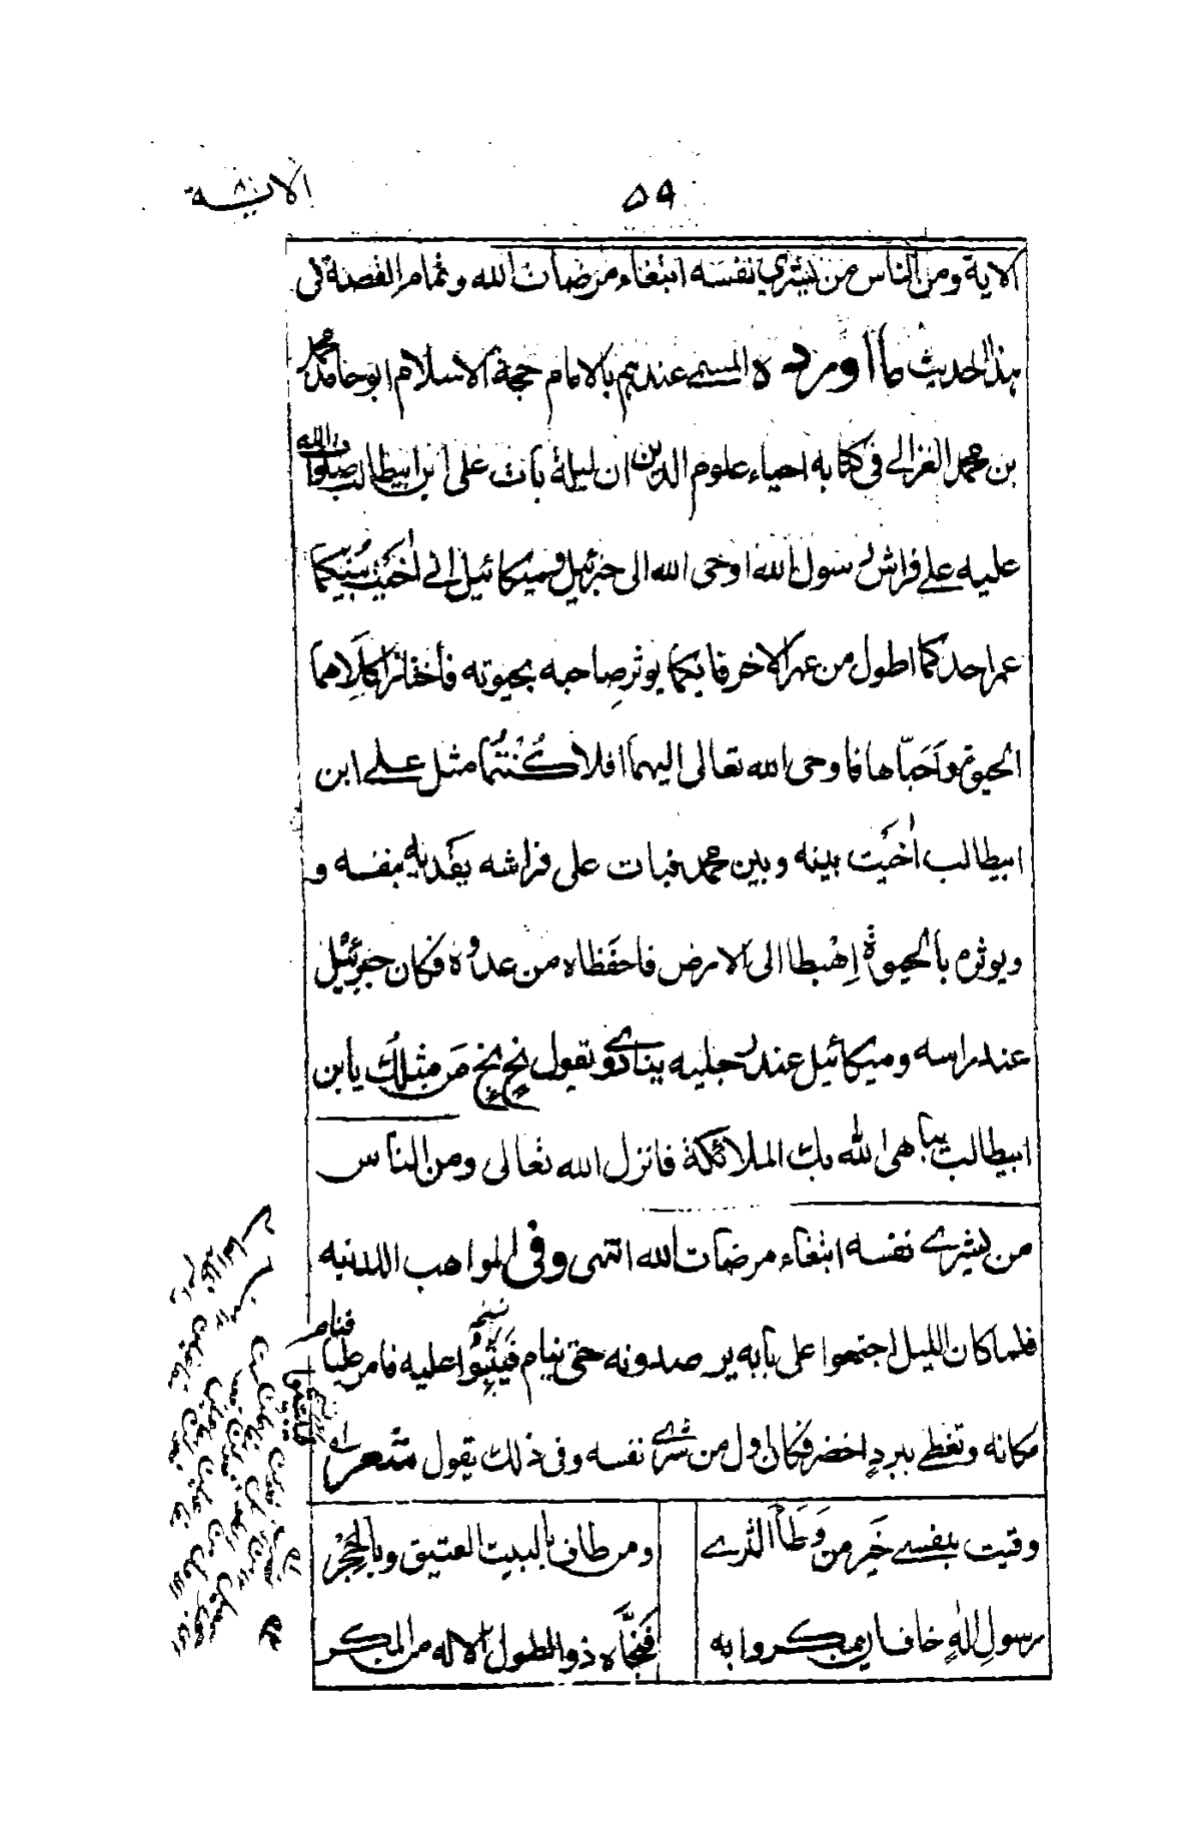 ۵۹
الاية
الاية ومن الناس من يشري نفسه ابتغاء مرضات الله وتمام القصة فى
هذا الحديث ما اورده المسمى عندهم بالامام حجة الاسلام ابو حامد محمد
بن محمد الغزالى فى كتابه احياء علوم الدين ان ليلة بات على ابن ابيطالب صلوات الله
عليه على فراش رسول الله اوحى الله الى جبرئيل وميكائيل انى اخَيْتُ بينكما
عمر احدكما اطول من عمر الاخر فايكما يوثر صاحبه بحيوته فاختار اكلاهما
الحيوة واَحَبّاها فاوحى الله تعالى اليهما افلا كُنْتُما مثل على ابن
ابيطالب اٰخيَت بينه وبين محمد فبات على فراشه يفديه بنفسه و
ويوثره بالحيوة اِهْبطا الى الارض فاحفظاه من عدوه فكان جبرئيل
عند راسه وميكائيل عند رجليه ينادى ويقول بخ بخ مَن مثلك يابن
ابيطالب يباهى الله بك الملائكة فانزل الله تعالى ومن الناس
من يشرى نفسه ابتغاء مرضات الله انتهى وفى المواهب اللدنيه
فلما كان الليل اجتمعوا على بابه يرصدونه حتى ينام فَيَثِبُوا عليه فامر عليا فنام
مكانه وتغطى ببردٍ اخضر فكان اول من شرى نفسه وفى ذلك يقول شعر
وقيت بنفسى خَير من وَطَأ الثرى ومن طاف بالبيت العتيق وبالحِجْر
رسولِ اللهِ خاف ان يمكروا به فَنَجَّاه ذو الطول الاله من المكر